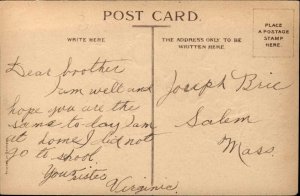 POST CARD.
PLACE
A POSTAGE
STAMP
HERE
WRITE HERE
THE ADDRESS ONLY TO BE
WRITTEN HERE.
Dear brother
I am well and
hope you are the
same to day I am
at home I did not
go to shool
Your sister
Virginia
Joseph Brie
Salem
Mass.